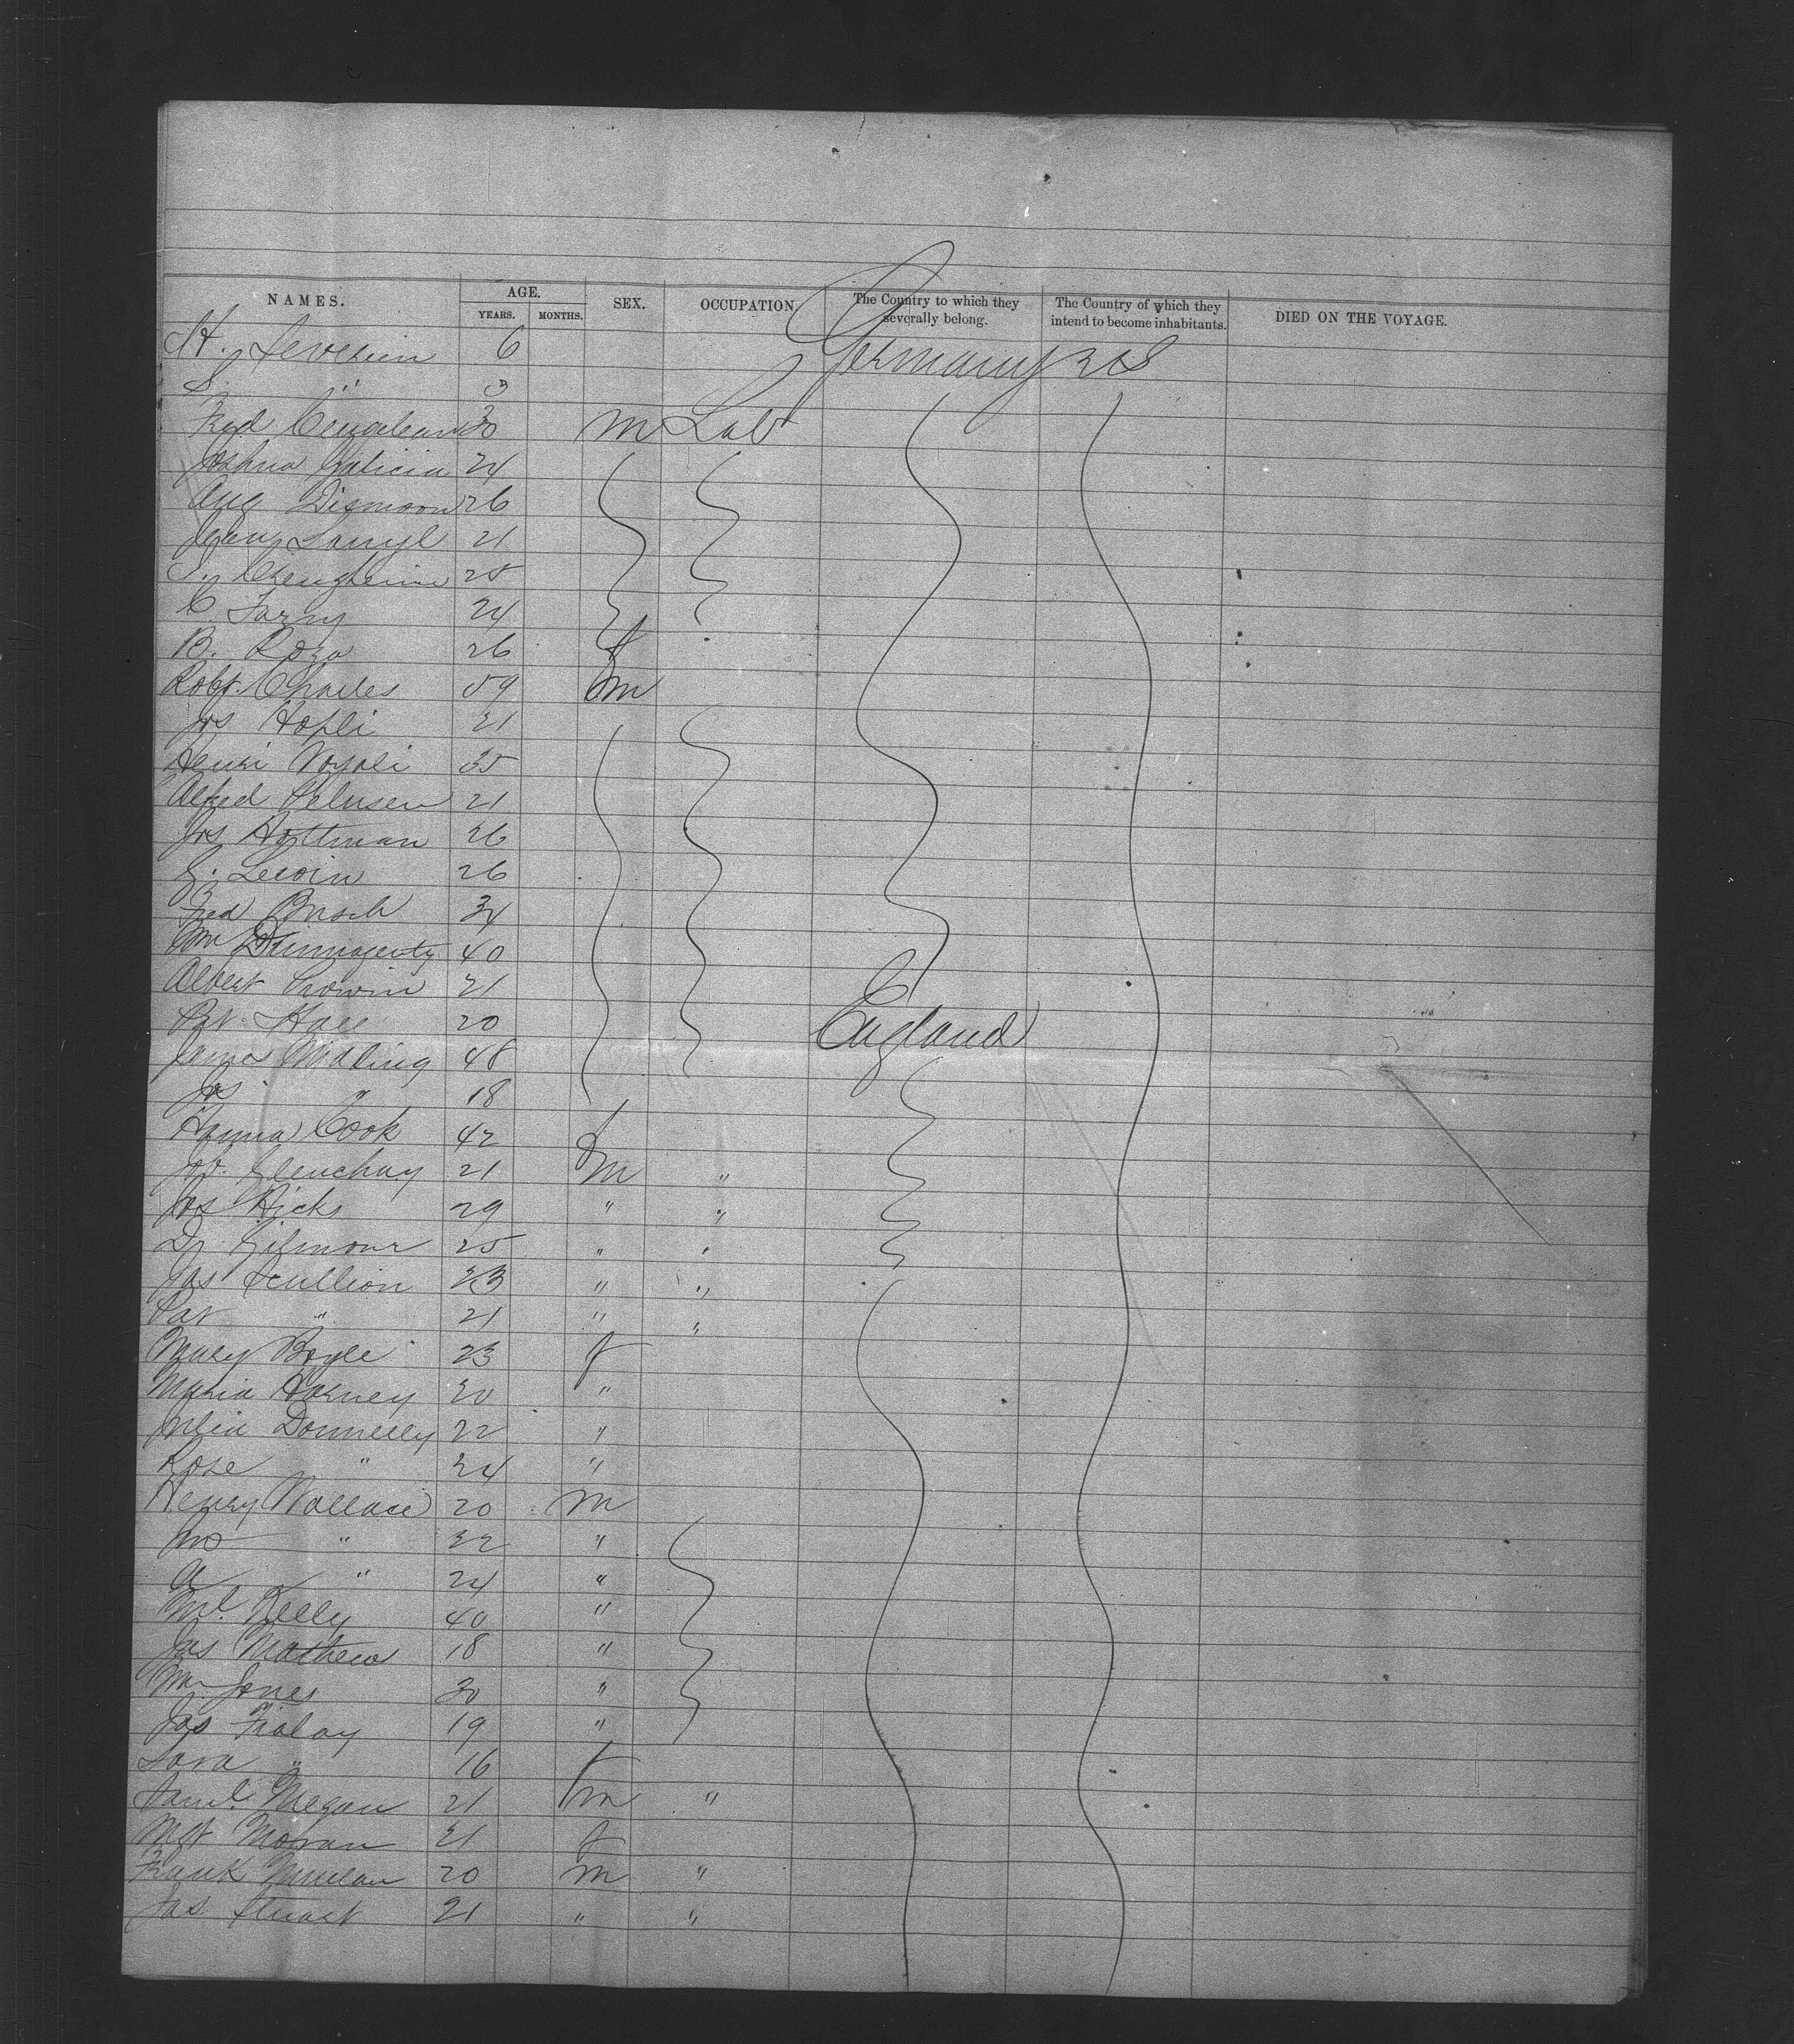 NAMES. AGE. SEX. OCCUPATION. The Country to which they severally belong. The Country of which they intend to become inhabitants. DIED ON THE VOYAGE.
YEARS. MONTHS.
H. Severin 6 Germany U S
S. " 3
Fred 30 m Lab
Joshua Galicia 24
Aug 26
21
S. 25
C 24
B. Roza 26 f
Robt. Charles 59 m
Jos Hopli 21
Henri 35
Alfred 21
Jos Hottman 26
G. Lewin 26
Fred Busch 34
Wm 40
Albert 21
Pat. Hall 20 England
48
Jos " 18
Hanna Cook 42 f
21 m "
Jos Hicks 29 " "
Gilmour 25 " "
Jas Scullion 23 " "
Pat " 21 " "
Mary Boyle 23 f
Maria Harney 20 "
Julia Donnelly 22 "
Rose " 24 "
Henry Wallace 20 m
Jno " 22 "
A " 24 "
Ml. Kelly 40 "
Jas Mathew 18 "
Wm Jones 30 "
Jas Finlay 19 "
Sara " 16 f
Saml. Megan 21 m "
Mgt Moran 21 f
Frank 20 m "
Jas. Stuart 21 " "